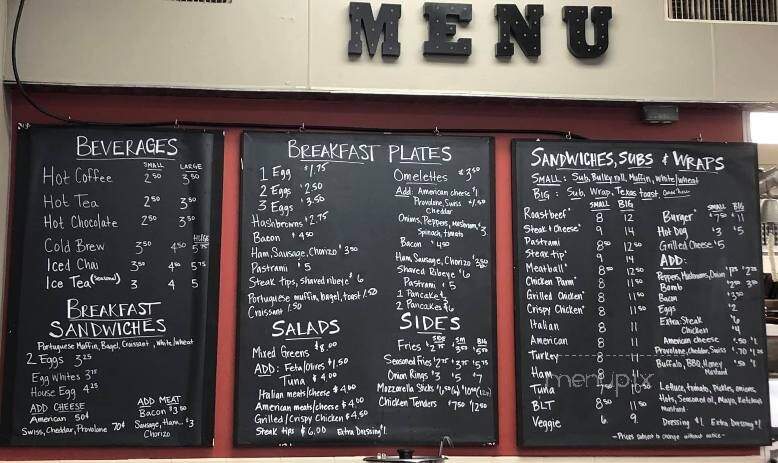 MENU
BEVERAGES
SMALL LARGE
Hot Coffee 2⁵⁰ 3⁵⁰
Hot Tea 2⁵⁰ 3⁵⁰
Hot Chocolate 2⁵⁰ 3⁵⁰
HUGE
Cold Brew 3⁵⁰ 4⁵⁰ 5⁷⁵
Iced Chai 3⁵⁰ 4⁵⁰ 5⁷⁵
Ice Tea (Seasonal) 3 4 5
BREAKFAST
SANDWICHES
Portuguese Muffin, Bagel, Croissant, White/wheat
2 Eggs 3²⁵
Egg Whites 3⁷⁵
House Egg 4²⁵
ADD CHEESE
American 50¢
Swiss, Cheddar, Provolone 70¢
ADD MEAT
Bacon $3⁵⁰
Sausage, Ham, $3
Chorizo
BREAKFAST PLATES
1 Egg $1.75
2 Eggs $2.50
3 Eggs $3.50
Hashbrowns $2.75
Bacon $4⁵⁰
Ham, Sausage, Chorizo $3⁵⁰
Pastrami $5
Steak tips, shaved ribeye $6
Portuguese muffin, bagel, toast 1.50
Croissant 1.50
Omelettes $3⁵⁰
Add: American cheese $1
Provolone, Swiss $1.50
Cheddar
Onions, Peppers, Mushrooms
Spinach, tomato
Bacon $4⁵⁰
Ham, Sausage, Chorizo $3⁵⁰
Shaved Ribeye $6
Pastrami $5
1 Pancake
2 Pancakes $6
SALADS
Mixed Greens $8.00
ADD: Feta/Olives $1.50
Tuna $4.00
Italian meats/cheese $4.00
American meats/cheese $4.00
Grilled/Crispy Chicken $4.50
Steak tips $6.00 Extra Dressing $1
SIDES
SIDE SM BIG
Fries $2⁷⁵ 3⁵⁰ 5⁵⁰
Seasoned Fries $2⁷⁵ $3⁷⁵ $5⁷⁵
Onion Rings $3 $5 $7
Mozzarella Sticks
Chicken Tenders $7⁵⁰ $12⁵⁰
SANDWICHES, SUBS & WRAPS
SMALL: Sub, Bulky roll, Muffin, White/Wheat
BIG: Sub, Wrap, Texas toast,
SMALL BIG
Roast beef 8 12
Steak & Cheese 9 14
Pastrami 8⁵⁰ 12⁵⁰
Steak tip 9 14
Meatball 8⁵⁰ 12⁵⁰
Chicken Parm 8 11⁵⁰
Grilled Chicken 8 11⁵⁰
Crispy Chicken 8 11⁵⁰
Italian 8 11
American 8 11
Turkey 8 11
Ham
Tuna
BLT 8⁵⁰ 11⁵⁰
Veggie 6 9
SMALL BIG
Burger $7⁵⁰ $11
Hot Dog $3 $5
Grilled Cheese $5
ADD:
Peppers, Mushrooms, Onion
Bomb
Bacon $3⁵⁰
Eggs $2
Extra: Steak $6
Chicken $4
American cheese .50 $1
Provolone, Cheddar, Swiss .70
Buffalo, BBQ, Honey .50 $1
Mustard
Lettuce, tomato, Pickles, onions,
Hots, Seasoned oil, Mayo, Ketchup
Mustard
Dressing $1 Extra Dressing $1
-Prices subject to change without notice-
menupix